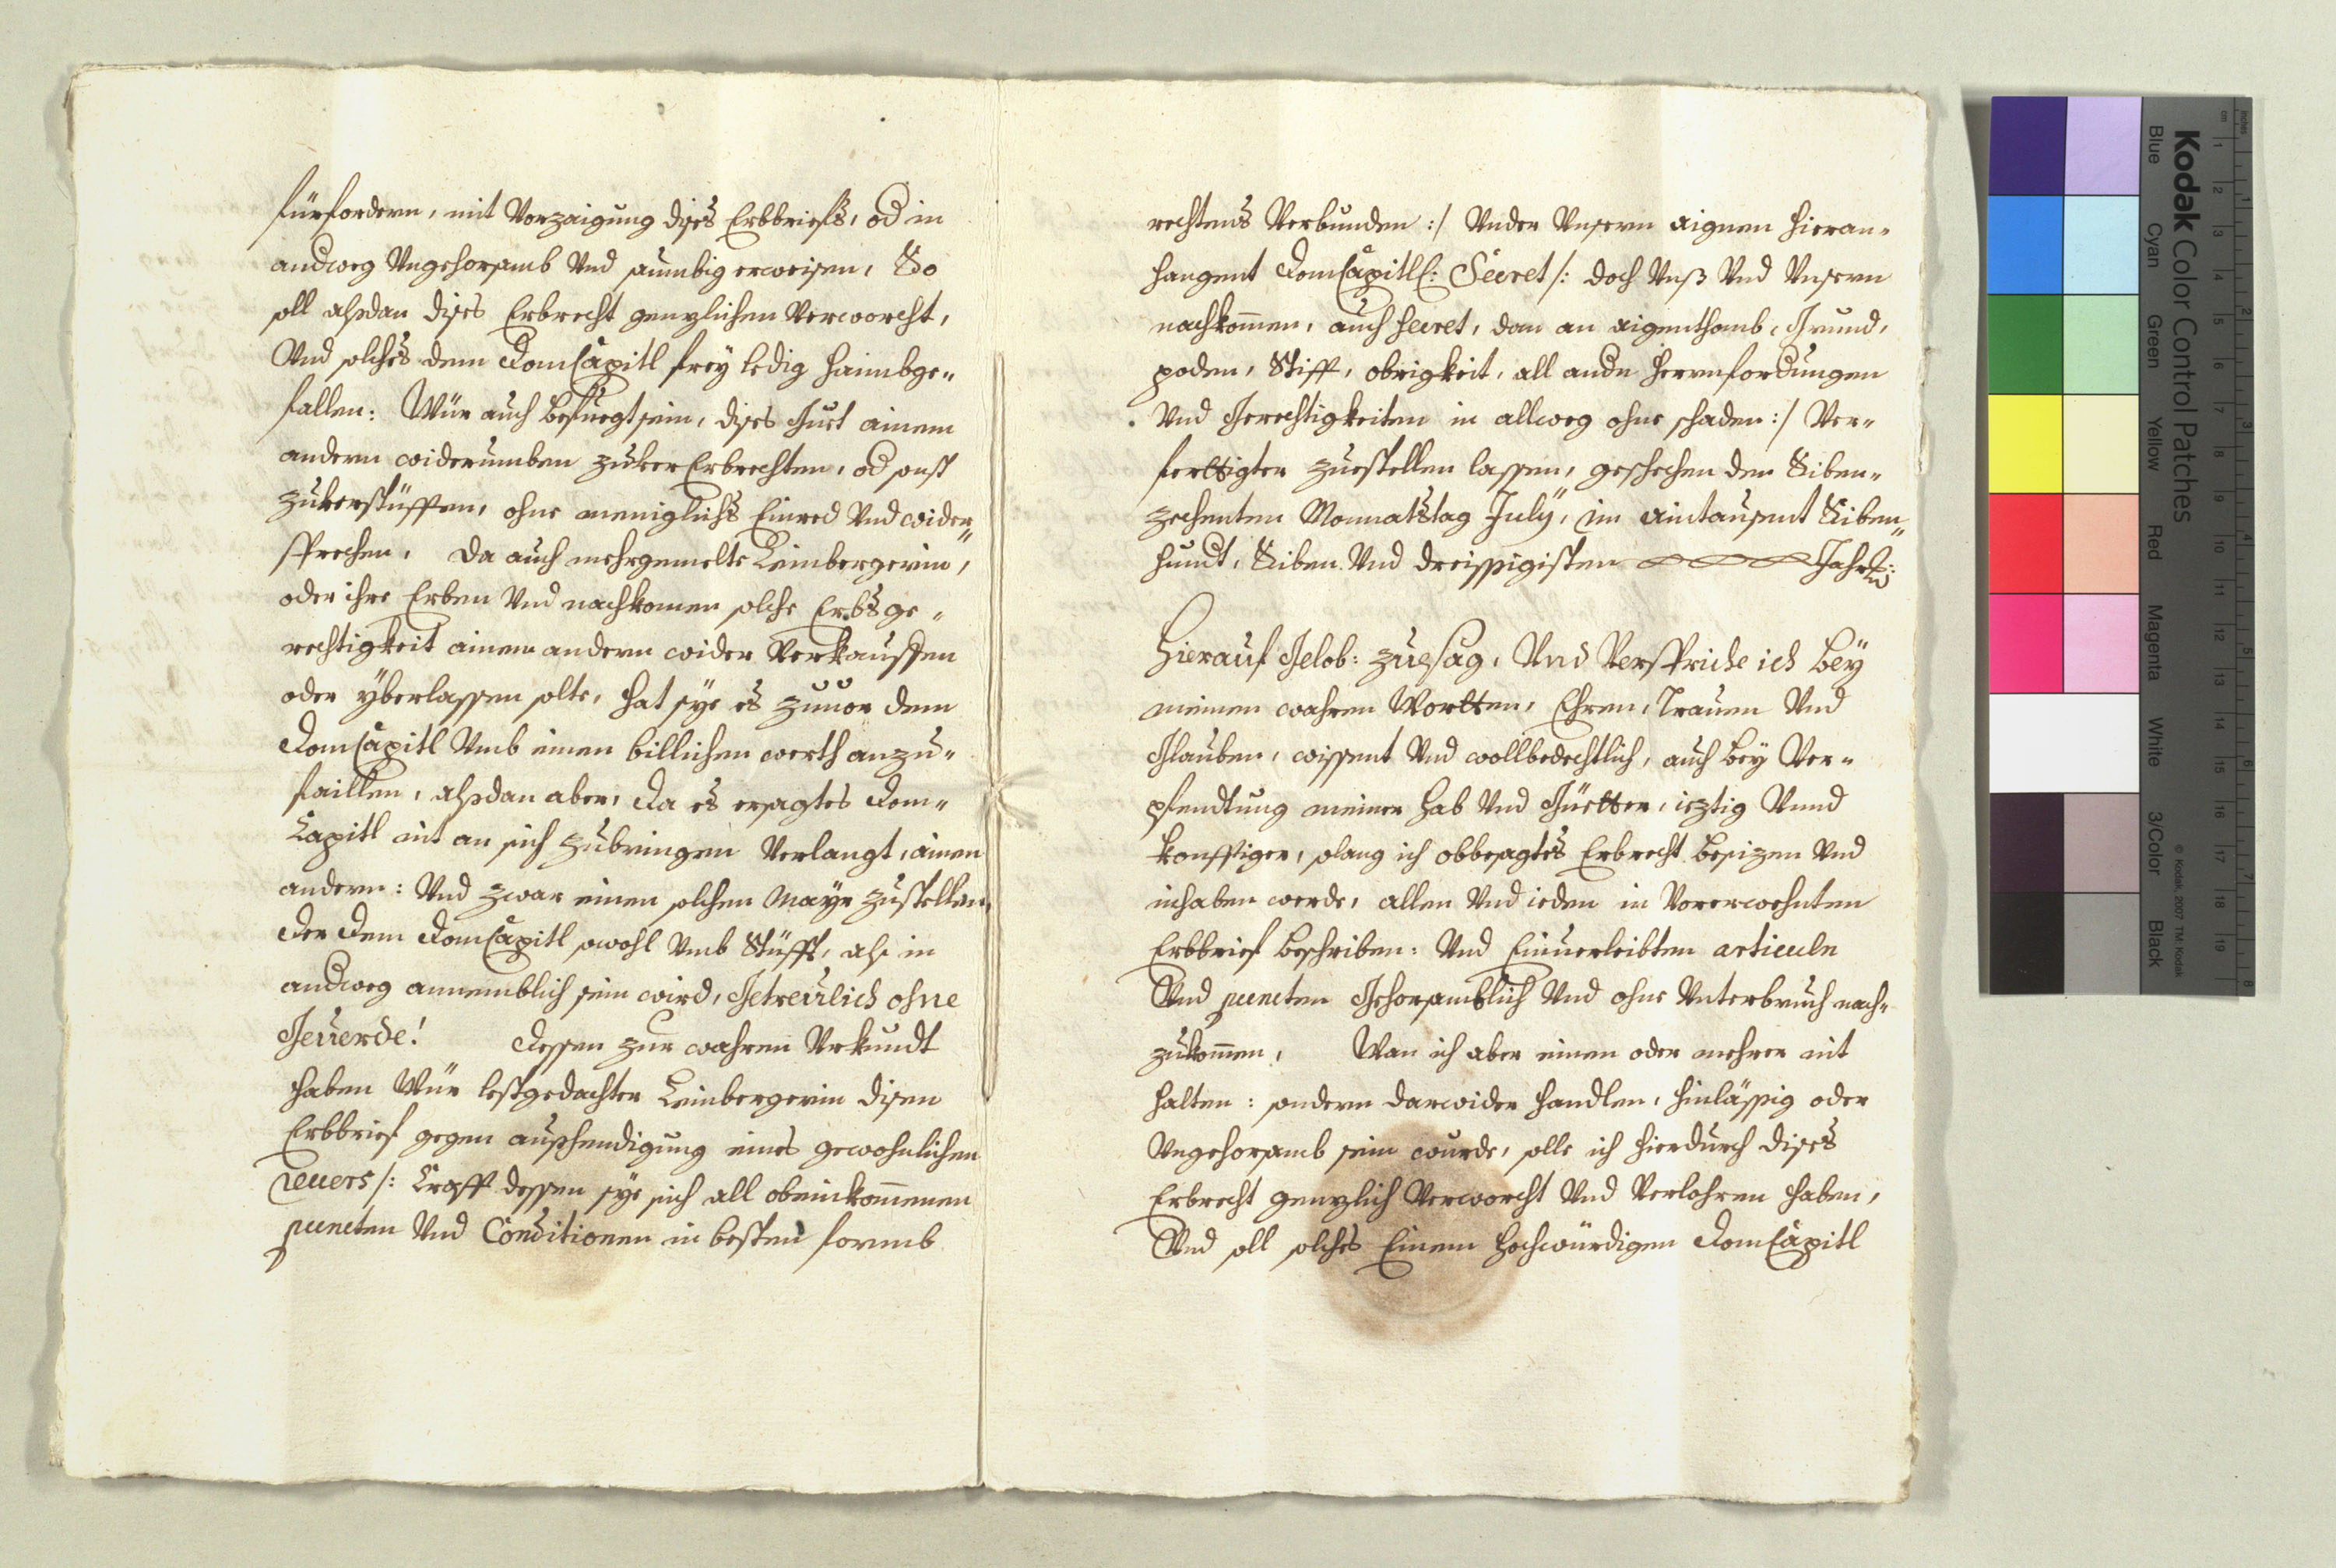 fürfordern, mit Vorzaigung dises Erbbriefs, od in
andweg Vngehorsamb Vnd saumbig erweisen, So
soll alßdan dises Erbrecht genzlichen Verworcht,
Vnd solches dem DomCapitl frey ledig haimbge-
fallen: Wür auch befuegt sein, dises Guet ainem
andern widerumben zuuerErbrechten, od sonst
zuuerstüfften, ohne meniglichs Einred Vnd wider-
sprechen, Da auch mehrgemelte Leimbergerin,
oder ihre Erben Vnd nachkomen solche Erbsge-
rechtigkeit ainem andern wider Verkauffen
oder yberlassen solte, hat sye es zuuor dem
DomCapitl Vmb einen billichen werth anzu-
faillen, alßdan aber, da es ersagtes Dom-
Capitl nit an sich zubringen Verlangt, ainen
andern: Vnd zwar einen solchen Mayr zustellen,
der dem DomCapitl sowohl Vmb Stüfft, als in
andweg annemblich sein wird, Getreülich ohne
Geuerde! Dessen zur wahren Vrkundt
haben Wür lestgedachter Leimbergerin disen
Erbbrief gegen außhendigung eines gewohnlichen
reuers /: Crafft dessen sye sich all obeinkommenen
puncten Vnd Conditionen in besten formb
rechtens Verbunden :/ Vnder Vnsern aignen hieran-
hangent DomCapitl: Secret /: doch Vnß Vnd Vnsern
nachkommen, auch secret, dan an aigenthomb, Grund,
poden, Stifft, obrigkeit, all andn herrnfordungen
Vnd Gerechtigkeiten in allweg ohne schaden :/ Ver-
ferttigter zuestellen lassen, geschechen den Siben-
zechenten Monnatstag July, im aintausent Siben-
hundt, Siben Vnd dreissigisten Jahrs
Hierauf Gelob: zuesag, Vnd Verspriche ich bey
meinen wahren Wortten, Ehren, Trauen Vnd
Glauben, wissent Vnd wollbedechtlich, auch bey Ver-
pfendtung meiner hab Vnd Güetter, ieztig Vnnd
konfftiger, solang ich obbesagtes Erbrecht besizen Vnd
inhaben werde, allen Vnd ieden in Vorerwehnten
Erbbrief beschriben: Vnd Einuerleibten articuln
Vnd puncten Gehorsamblich Vnd ohne Vnterbruch nach-
zukommen, Wan ich aber einen oder mehrer nit
halten: sondern darwider handlen, hinlässig oder
Vngehorsamb sein wurde, solle ich hierdurch dises
Erbrecht genzlich Verworcht Vnd Verlohren haben,
Vnd soll solches Einem hochwürdigen DomCapitl
Kodak Color Control Patches
Blue Cyan Green Yellow Red Magenta White 3/Color Black
© Kodak, 2007 TM: Kodak
cm 1 2 3 4 5 6 7 8 9 10 11 12 13 14 15 16 17 18 19
inches 1 2 3 4 5 6 7 8